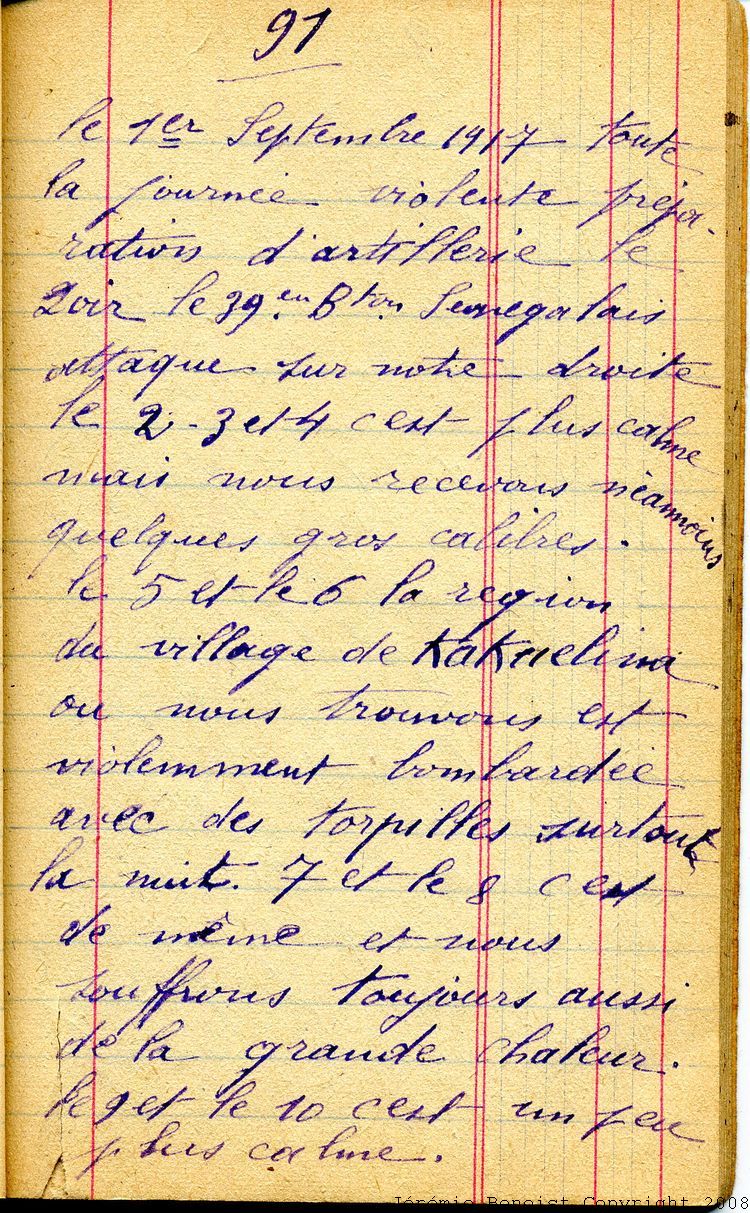 91
le 1er Septembre 1917 toute
la journée violente prépa-
ration d'artillerie le
Soir le 39.em Bton. Senegalais
attaque sur notre droite
le 2-3 et 4 c'est plus calme
mais nous recevons néanmoins
quelques gros calibres.
le 5 et le 6 la region
du village de Kakaelina
ou nous trouvons est
violemment bombardée
avec des torpilles surtout
la nuit. 7 et le 8 c'est
de même et nous
souffrons toujours aussi
de la grande chaleur.
le 9 et le 10 c'est un peu
plus calme.
Jérémie Benoist Copyright 2008